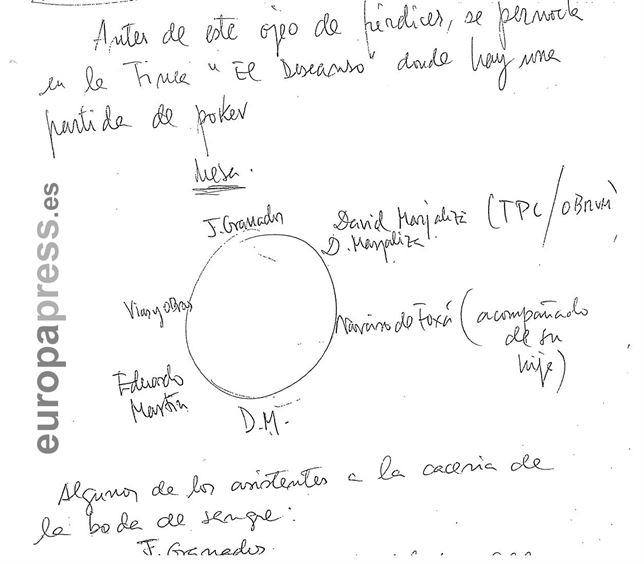 Antes de este ojeo de perdices, se pernocta
en la Finca "El Descanso" donde hay una
partida de poker
Mesa.
J. Granados
David Marjaliza (TPC/OBRUM)
D. Marjaliza
Vias y obras
Narciso de Foxá (acompañado
de su
hije)
Eduardo
Martín
D.M.
Algunos de los asistentes a la caceria de
la boda de sangre:
F. Granados
europapress.es